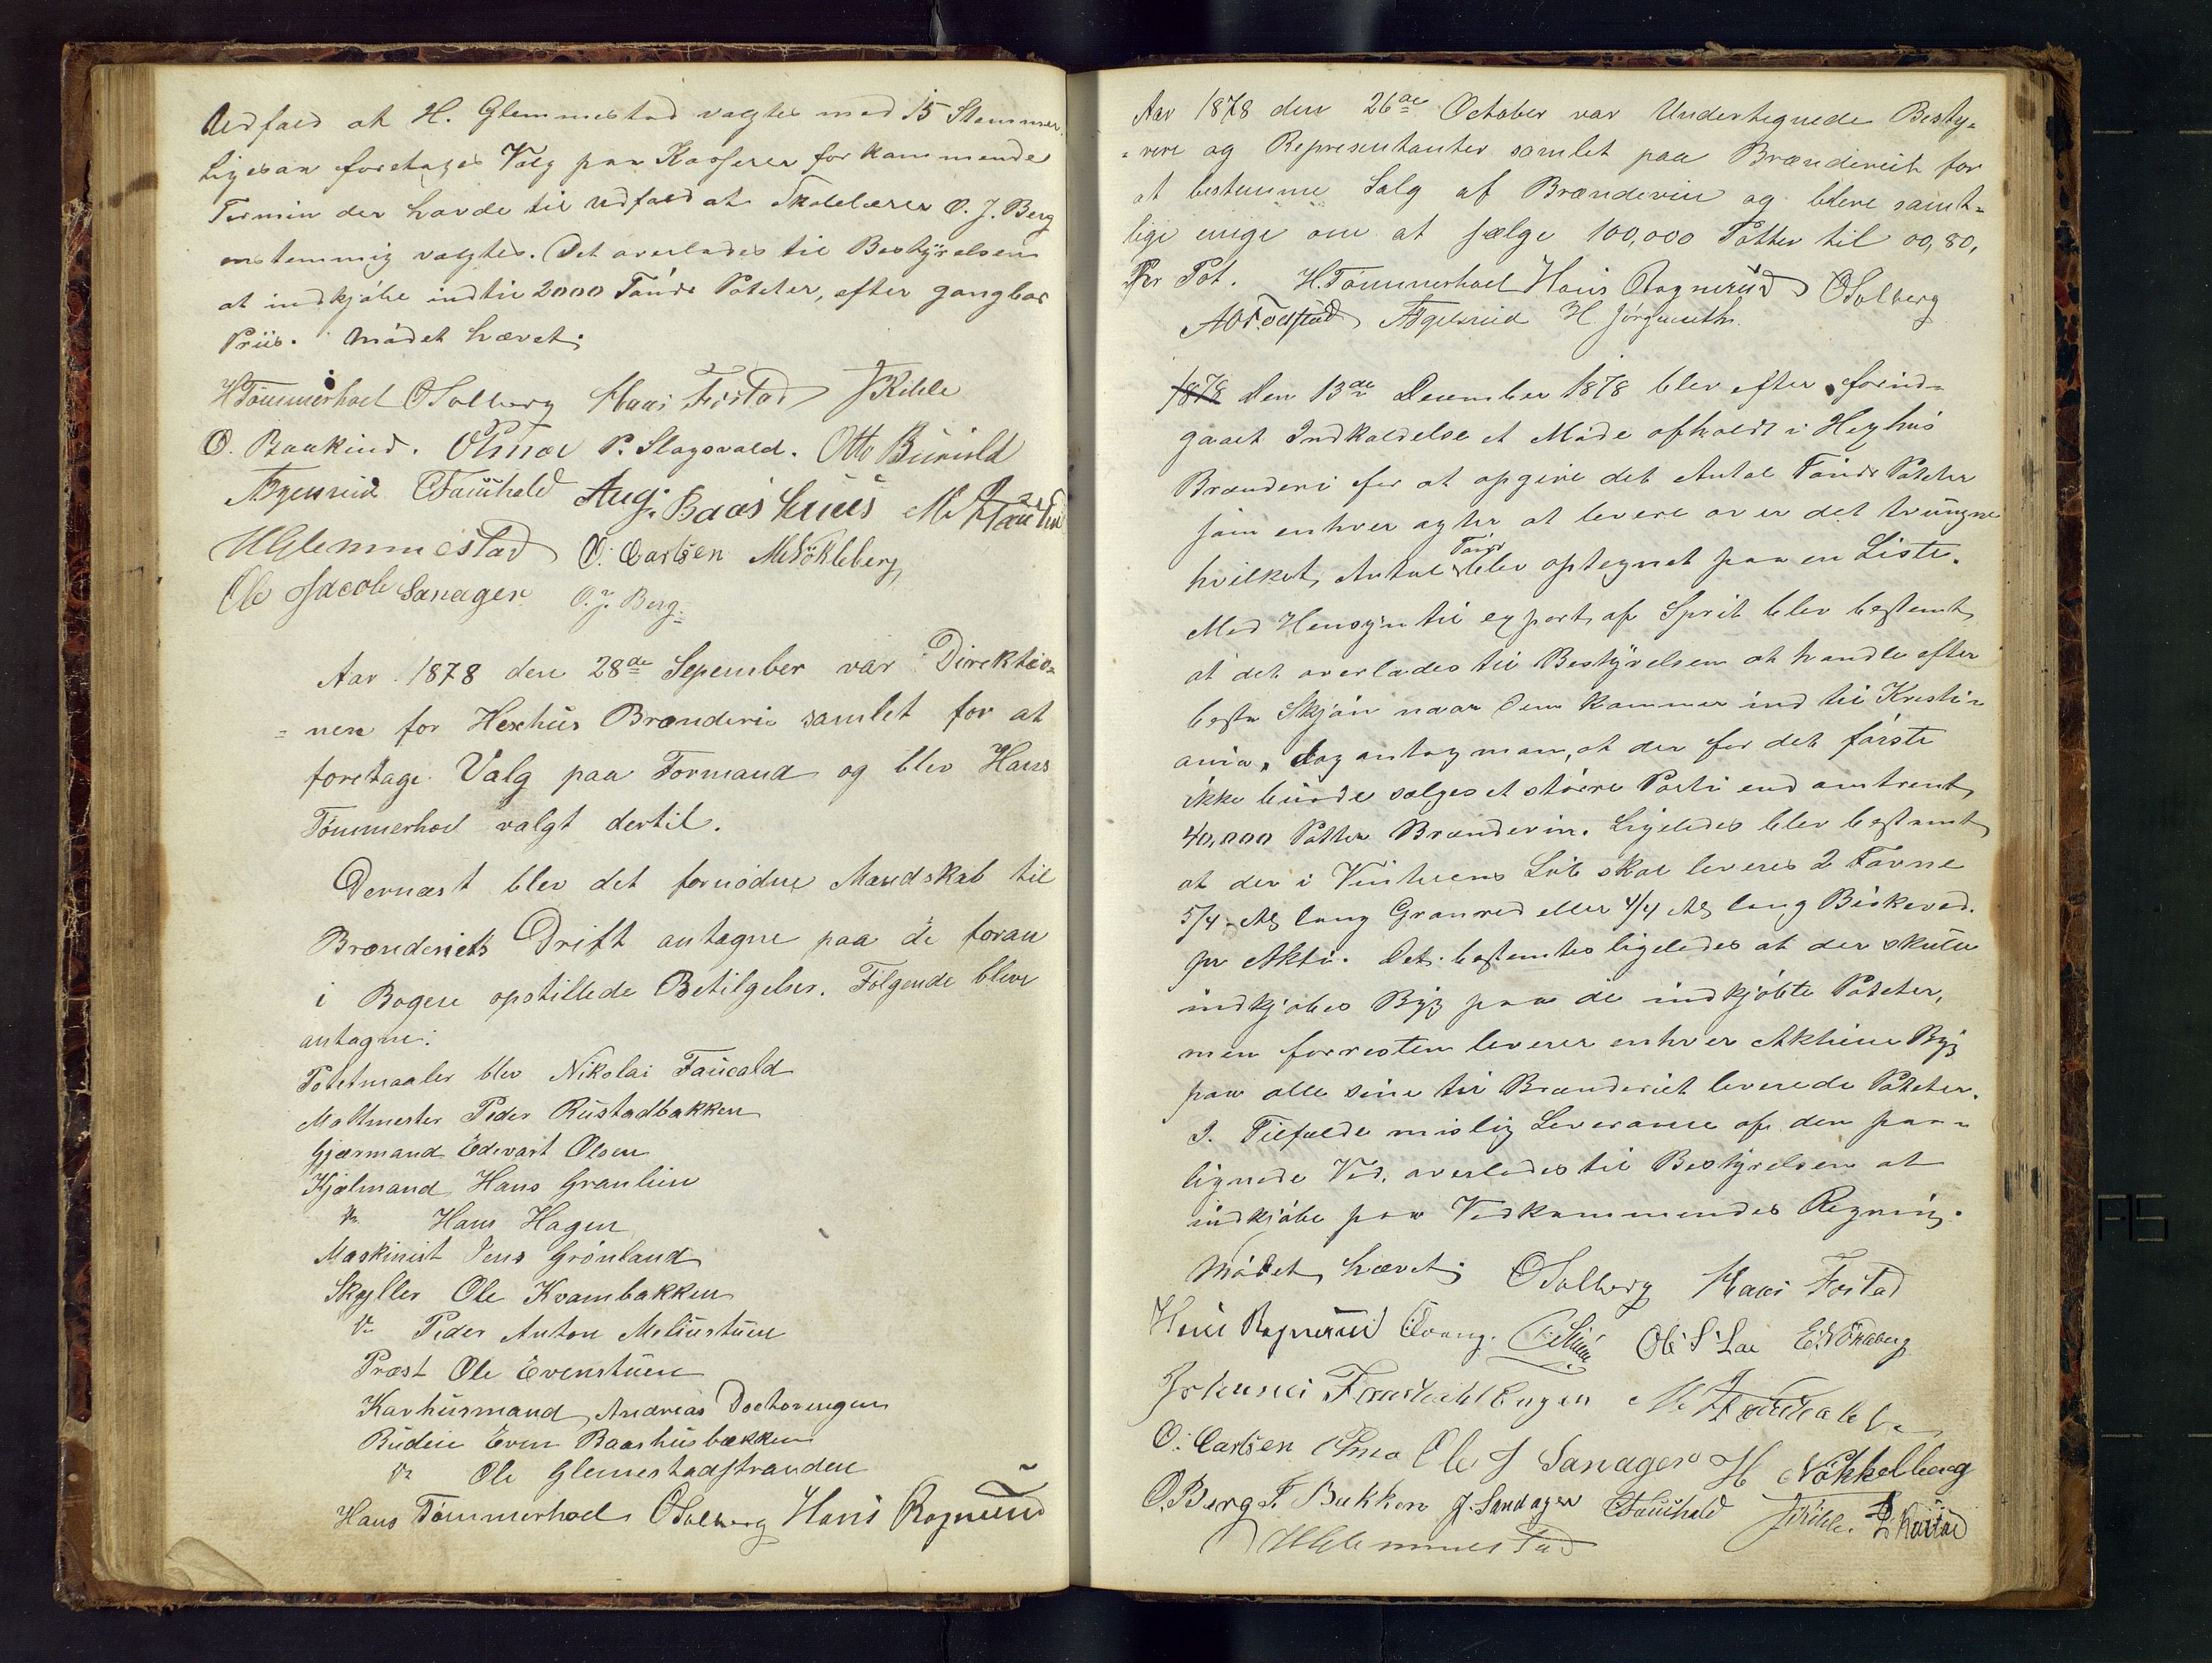 Udfald at H. Glemmestad valgtes med 15 Stemmer.
Ligesaa foretages Valg paa Kasserer for kommende
Termin der havde til Udfald at Skolelærer O. J. Berg
enstemmig valgtes. Det overlades til Bestyrelsen
at indkjøbe indtil 2000 Tønde Poteter, efter gangbar
Priis. Mødet hævet;
H Tømmerhoel O Solberg Hans Fostad J Kihle
O. Baakind. O Smør P. Slagsvold. Otto Burild
C Fauchald Aug: Baashuus M.
H Glemmestad O. Carlsen M Nøkleberg
Ole Jacob Sanager O. J. Berg.
Aar 1878 den 28de Sepember var Direktio-
= nen for Hexhus Brænderi samlet for at
foretage Valg paa Formand og blev Hans
Tømmerhoel valgt dertil.
Dernæst blev det fornødne Mandskab til
Brænderiets Drift antagne paa de foran
i Bogen opstillede Betilgelser. Følgende bleve
antagne:
Potetmaaler blev Nikolai Faucald
Maltmester Peder Rustadbakken
Gjærmand Edevart Olsen
Kjælmand Hans Graulien
Do Hans Hagen
Maskinist Jens Grønland
Skyller Ole Kvambakken
Do Peder Anton Meliustuen
Præst Ole Evenstuen
Karhusmand Andreas Doctorengen
Budeie Even Baashusbakken
Do Ole Glemestadstranden
Hans Tømmerhoel O Solberg Hans Rognerud
Aar 1878 den 26de October var Undertegnede Besty-
= rere og Representanter samlet paa Brænderiet for
at bestemme Salg af Brændeviin og bleve samt-
lige enige om at sælge 100,000 Potter til 00,80,
Per Pot. H. Tømmerhoel Hans Rognerud O Solberg
H. Jørgenseth.
1878 Den 13de December 1878 blev efter forind-
gaaet Indkaldelse et Møde afholdt i Hexhus
Brænderi for at opgive det Antal Tønde Poteter
som enhver agter at levere over det tvungne
hvilket Antal Tønder blev optegnet paa en Liste.
Med Hensyn til export af Sprit blev bestemt
at det overlades til Bestyrelsen at handle efter
beste Skjøn naar Dem kommer ind til Kristi-
ania, dog antog man, at der for det første
ikke burde sælges et større Parti end omtrent
40,000 Potter Brændeviin. Ligeledes blev bestemt
at der i Vinterens Løb skal leveres 2 Favne
5/4 Al lang Granved eller 4/4 Al lang Birkeved.
pr Aktie. Det bestemtes ligeledes at der skulle
indkjøbes Byg paa de indkjøbte Poteter,
men forresten leverer enhver Aktieier Byg
paa alle sine til Brænderiet leverede Poteter.
I Tilfælde mislig Leverance af den paa-
lignede Ved, overlades til Bestyrelsen at
indkjøbe paa Vedkommendes Regning.
Mødet hævet; O Solberg Hans Fostad
Hans Rognerud Evang. Ole S Lae
Johannes Fauchald Engen M.
O. Carlsen Ole J Sanager H Nøkkelberg
O. Berg F. Bakken J. Sandager C Fauchald J Kihle.
H Glemmestad